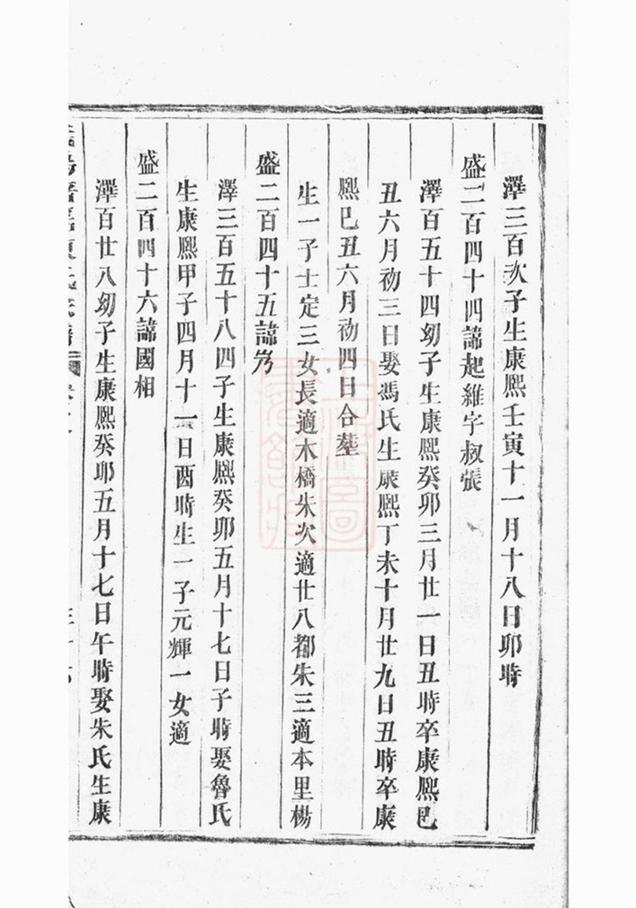 澤三百次子生康熙壬寅十一月十八日卯時
盛二百四十四諱起維字叔張
澤百五十四㓜子生康熙癸卯三月廿一日丑時卒康熙己
丑六月初三日娶馮氏生康熙丁未十月廿九日丑時卒康
熙己丑六月初四日合塟
生一子士定三女長適木橋朱次適廿八都朱三適本里楊
盛二百四十五諱
澤三百五十八四子生康熙癸卯五月十七日子時娶魯氏
生康熙甲子四月十一日酉時生一子元輝一女適
盛二百四十六諱國相
澤百廿八㓜子生康熙癸卯五月十七日午時娶朱氏生康